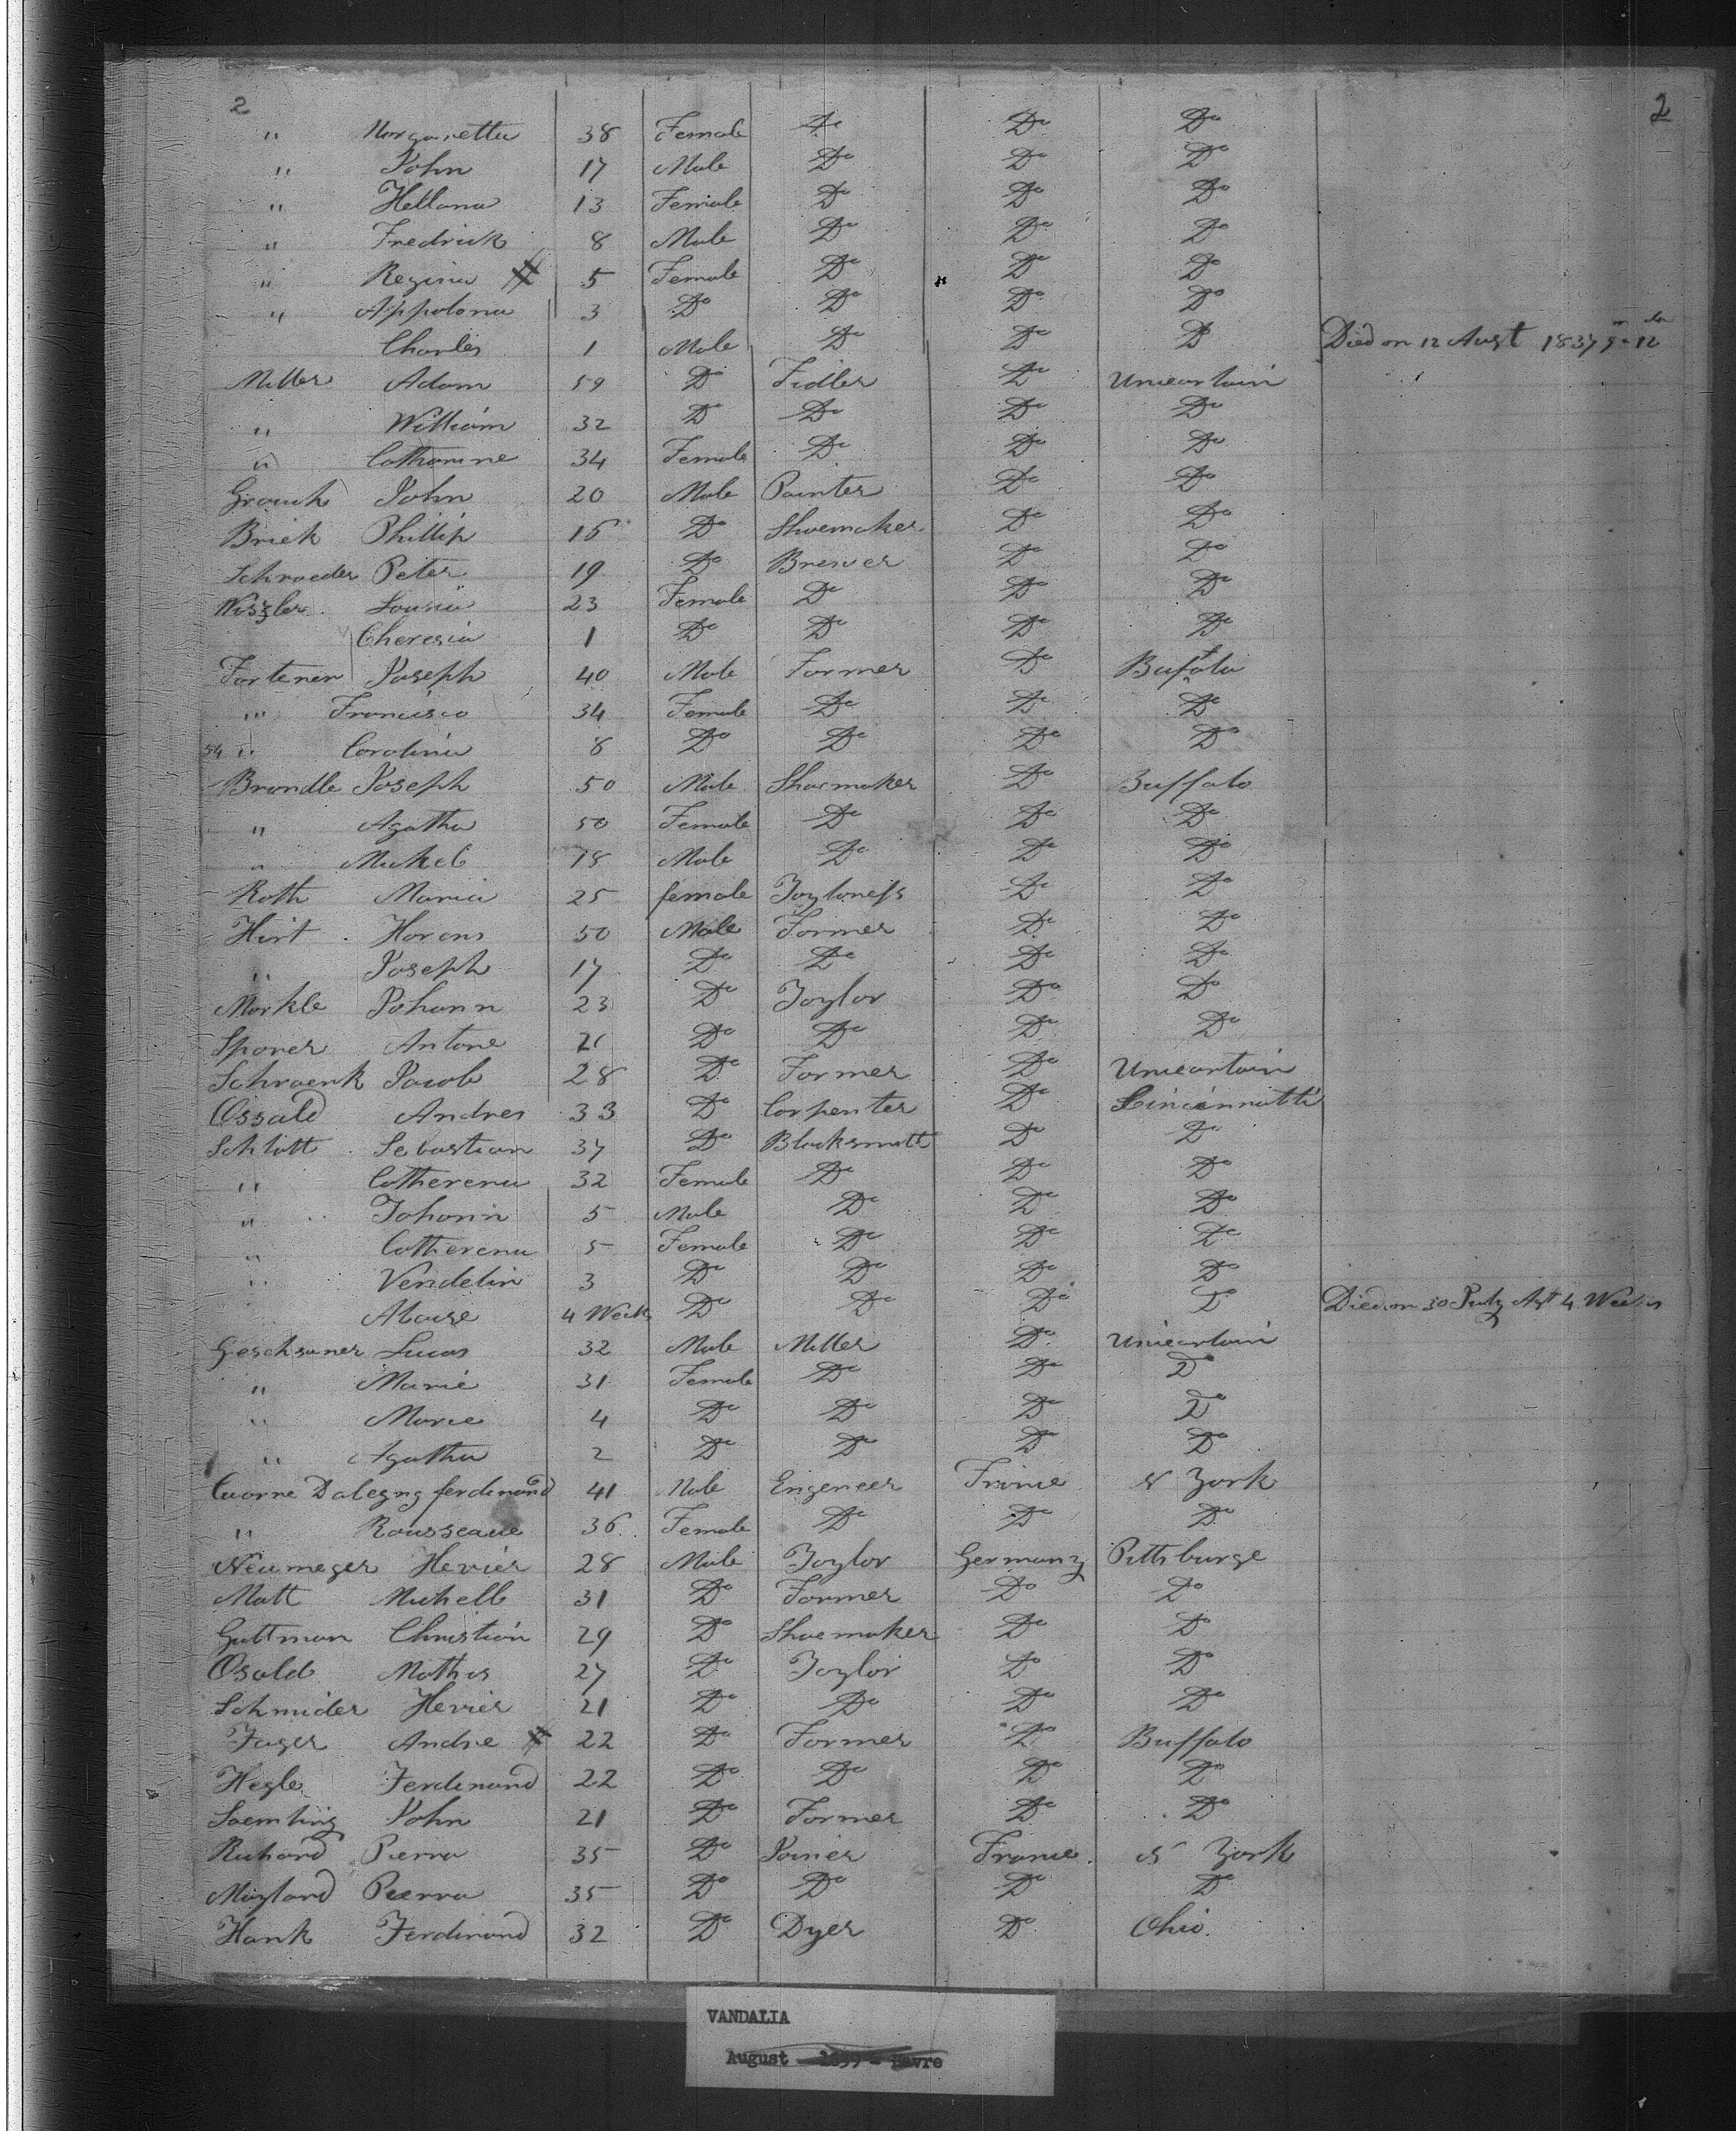 2 2
" Margaretta 38 Female Do Do Do
" John 17 Male Do Do Do
" Hellana 13 Female Do Do Do
" Fredrick 8 Male Do Do Do
" Regina # 5 Female Do Do Do
" Appolona 3 Do Do Do Do
Charles 1 Male Do Do Do Died on 12 Augt 1837
Miller Adam 59 Do Fidler Do Uncartain
" William 32 Do Do Do Do
" Catharine 34 Female Do Do Do
John 20 Male Painter Do Do
Briek Phillip 16 Do Shoemaker Do Do
Schroeder Peter 19 Do Brewer Do Do
Wiszler Louisia 23 Female Do Do Do
Theresia 1 Do Do Do Do
Fortener Joseph 40 Male Farmer Do Bufalo
" Francisco 34 Female Do Do Do
54 " Carolina 8 Do Do Do Do
Brandle Joseph 50 Male Shoemaker Do Buffalo
" Agatha 50 Female Do Do Do
" Mickel 18 Male Do Do Do
Roth Maria 25 female Tayloness Do Do
Hirt Horens 50 Male Farmer Do Do
" Joseph 17 Do Do Do Do
Markle Johann 23 Do Taylor Do Do
Sporer Antone Do Do Do Do
Schraenk Jacob 28 Do Farmer Do Uncartain
Ossald Andres 33 Do Carpenter Do Cincinnatti
Schlott Sebastian 37 Do Blacksmatt Do Do
" Catherena 32 Female Do Do Do
" Johann 5 Male Do Do Do
" Catherena 5 Female Do Do Do
" Vendelin 3 Do Do Do Do
Aloise 4 Weeks Do Do Do Do Died on 30 July Agt 4 Weeks
Geschsaner Lucas 32 Male Miller Do Uncartain
" Marie 31 Female Do Do Do
" Marie 4 Do Do Do Do
" Agatha 2 Do Do Do Do
Cuorne Dalegng ferdinand 41 Male Engeneer France N York
" Rousseaue 36 Female Do Do Do
Neumeger Hevier 28 Male Taylor Germany Pittsburge
Matt Michell 31 Do Farmer Do Do
Guttman Christian 29 Do Shoemaker Do Do
Osald Mathas 27 Do Taylor Do Do
Schmider Hevier 21 Do Do Do Do
Jager Andre # 22 Do Farmer Do Buffalo
Hegle Ferdinand 22 Do Do Do Do
Saemling John 21 Do Farmer Do Do
Richard Pierra 35 Do Joiner France N York
Maylard Peerra 35 Do Do Do Do
Hank Ferdinand 32 Do Dyer Do Ohio.
VANDALIA
August 1837 - Havre